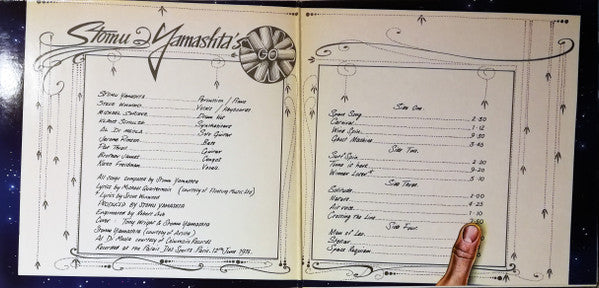 Stomu Yamashta's
GO
Stomu Yamashta Percussion / Piano
Steve Winwood Vocals / Keyboards
Michael Shrieve Drum Kit
Klaus Schulze Synthesizers
Al Di Meola Solo Guitar
Jerome Rimson Bass
Pat Thrall Guitar
Brother James Congas
Karen Friedman Vocals
All songs composed by Stomu Yamashta
Lyrics by Michael Quartermain (courtesy of Floating Music Ltd)
* Lyrics by Steve Winwood
Produced by Stomu Yamashta
Engineered by Robert Ash
Cover - Tony Wright & Stomu Yamashta
Stomu Yamashta (courtesy of Arista)
Al Di Meola courtesy of Columbia Records
Recorded at the Palais Des Sports Paris. 12th June 1976.
Side One.
Space Song 2·30
Carnival 1·12
Wind Spin 9·30
Ghost Machine 3·45
Side Two.
Surf Spin 2·20
Time is here 9·20
Winner Loser* 5·10
Side Three.
Solitude
Nature
Air voice 1·10
Crossing the Line
Side Four.
Man of Leo
Stellar
Space Requiem